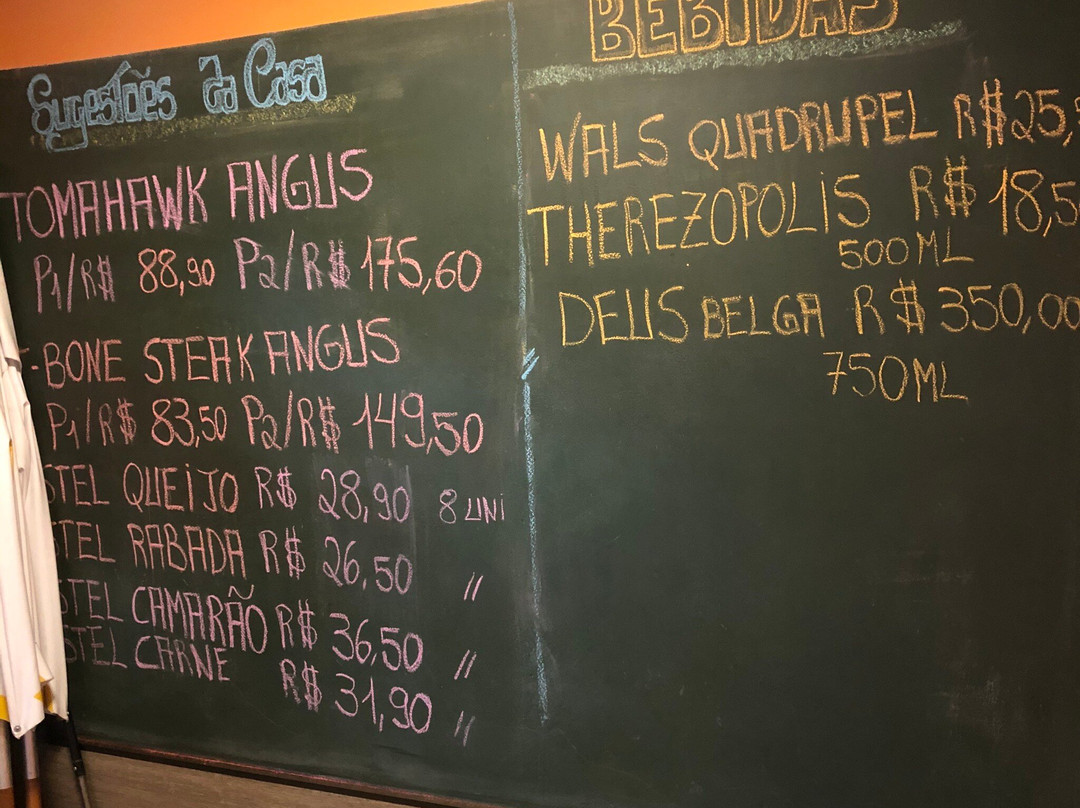 Sugestões da Casa
TOMAHAWK ANGUS
P1/R$ 88,90 P2/R$ 175,60
-BONE STEAK ANGUS
P1/R$ 83,50 P2/R$ 149,50
STEL QUEIJO R$ 28,90 8 UNI
STEL RABADA R$ 26,50 "
STEL CAMARÃO R$ 36,50 "
STEL CARNE R$ 31,90 "
BEBIDAS
WALS QUADRUPEL R$ 25,
THEREZOPOLIS R$ 18,50
500ML
DEUS BELGA R$ 350,00
750ML